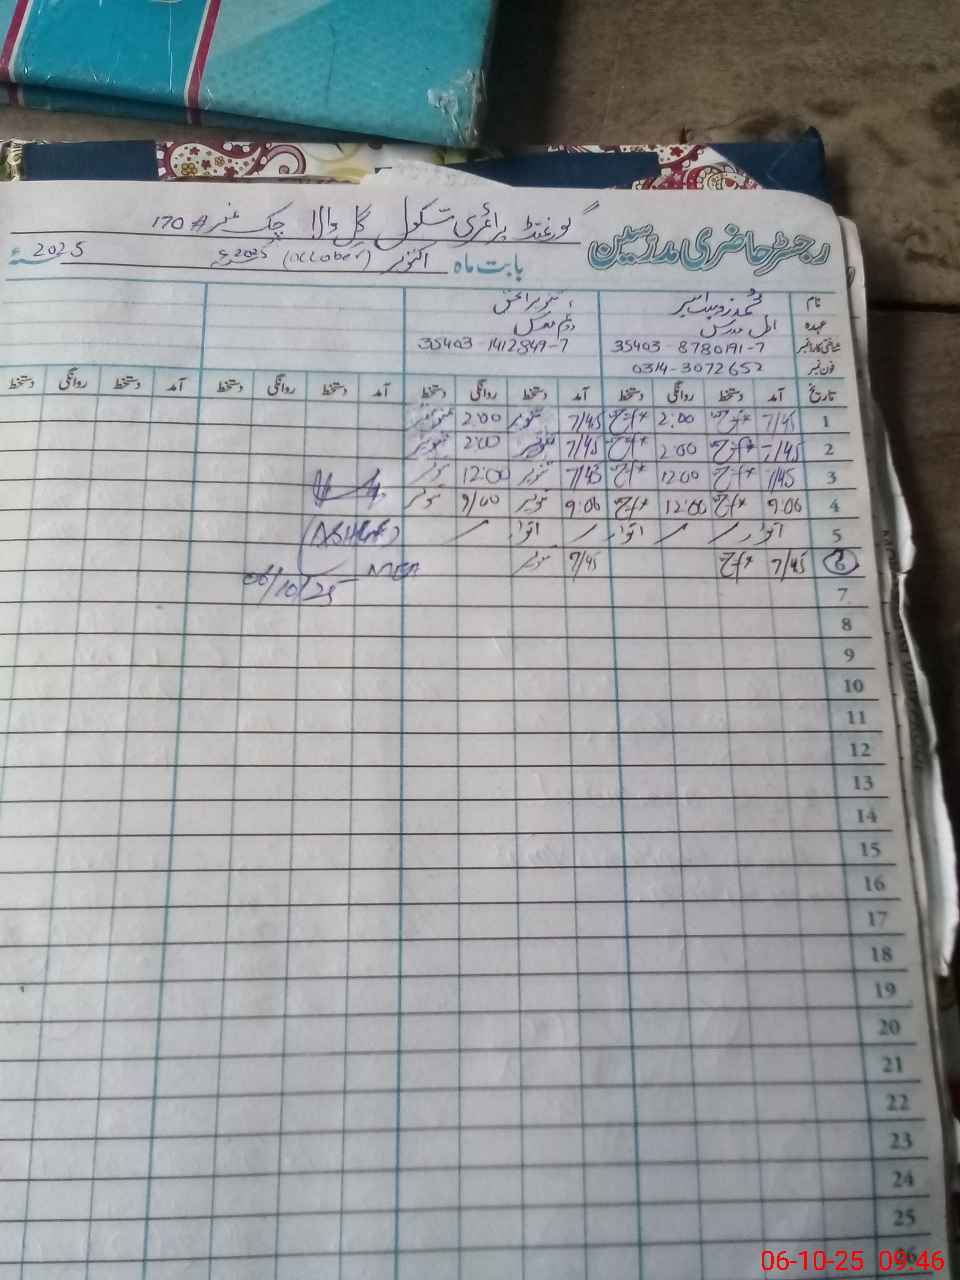 رجسٹر حاضری مدرسین
گورنمنٹ پرائمری سکول گل والا چک نمبر #170
بابت ماہ اکتوبر (October) 2025ء 2025ء
نام محمد زوہیب
عہدہ اول مدرس دوئم مدرس
شناختی کارڈ نمبر 35403-8780191-7 35403-1412849-7
فون نمبر 0314-3072652
تاریخ آمد دستخط روانگی دستخط آمد دستخط روانگی دستخط آمد دستخط روانگی دستخط آمد دستخط روانگی دستخط
1 7/45 2:00 7/45 تنویر 2:00 تنویر
2 7/45 2:00 7/45 تنویر 2:00 تنویر
3 7/45 12:00 7/45 تنویر 12:00
4 9:06 12:00 9:06 تنویر 9/00 تنویر
5 اتوار اتوار اتوار
6 7/45 7/45 تنویر
(ASHRAF)
MEA
06/10/25
7
8
9
10
11
12
13
14
15
16
17
18
19
20
21
22
23
24
25
26
06-10-25 09:46